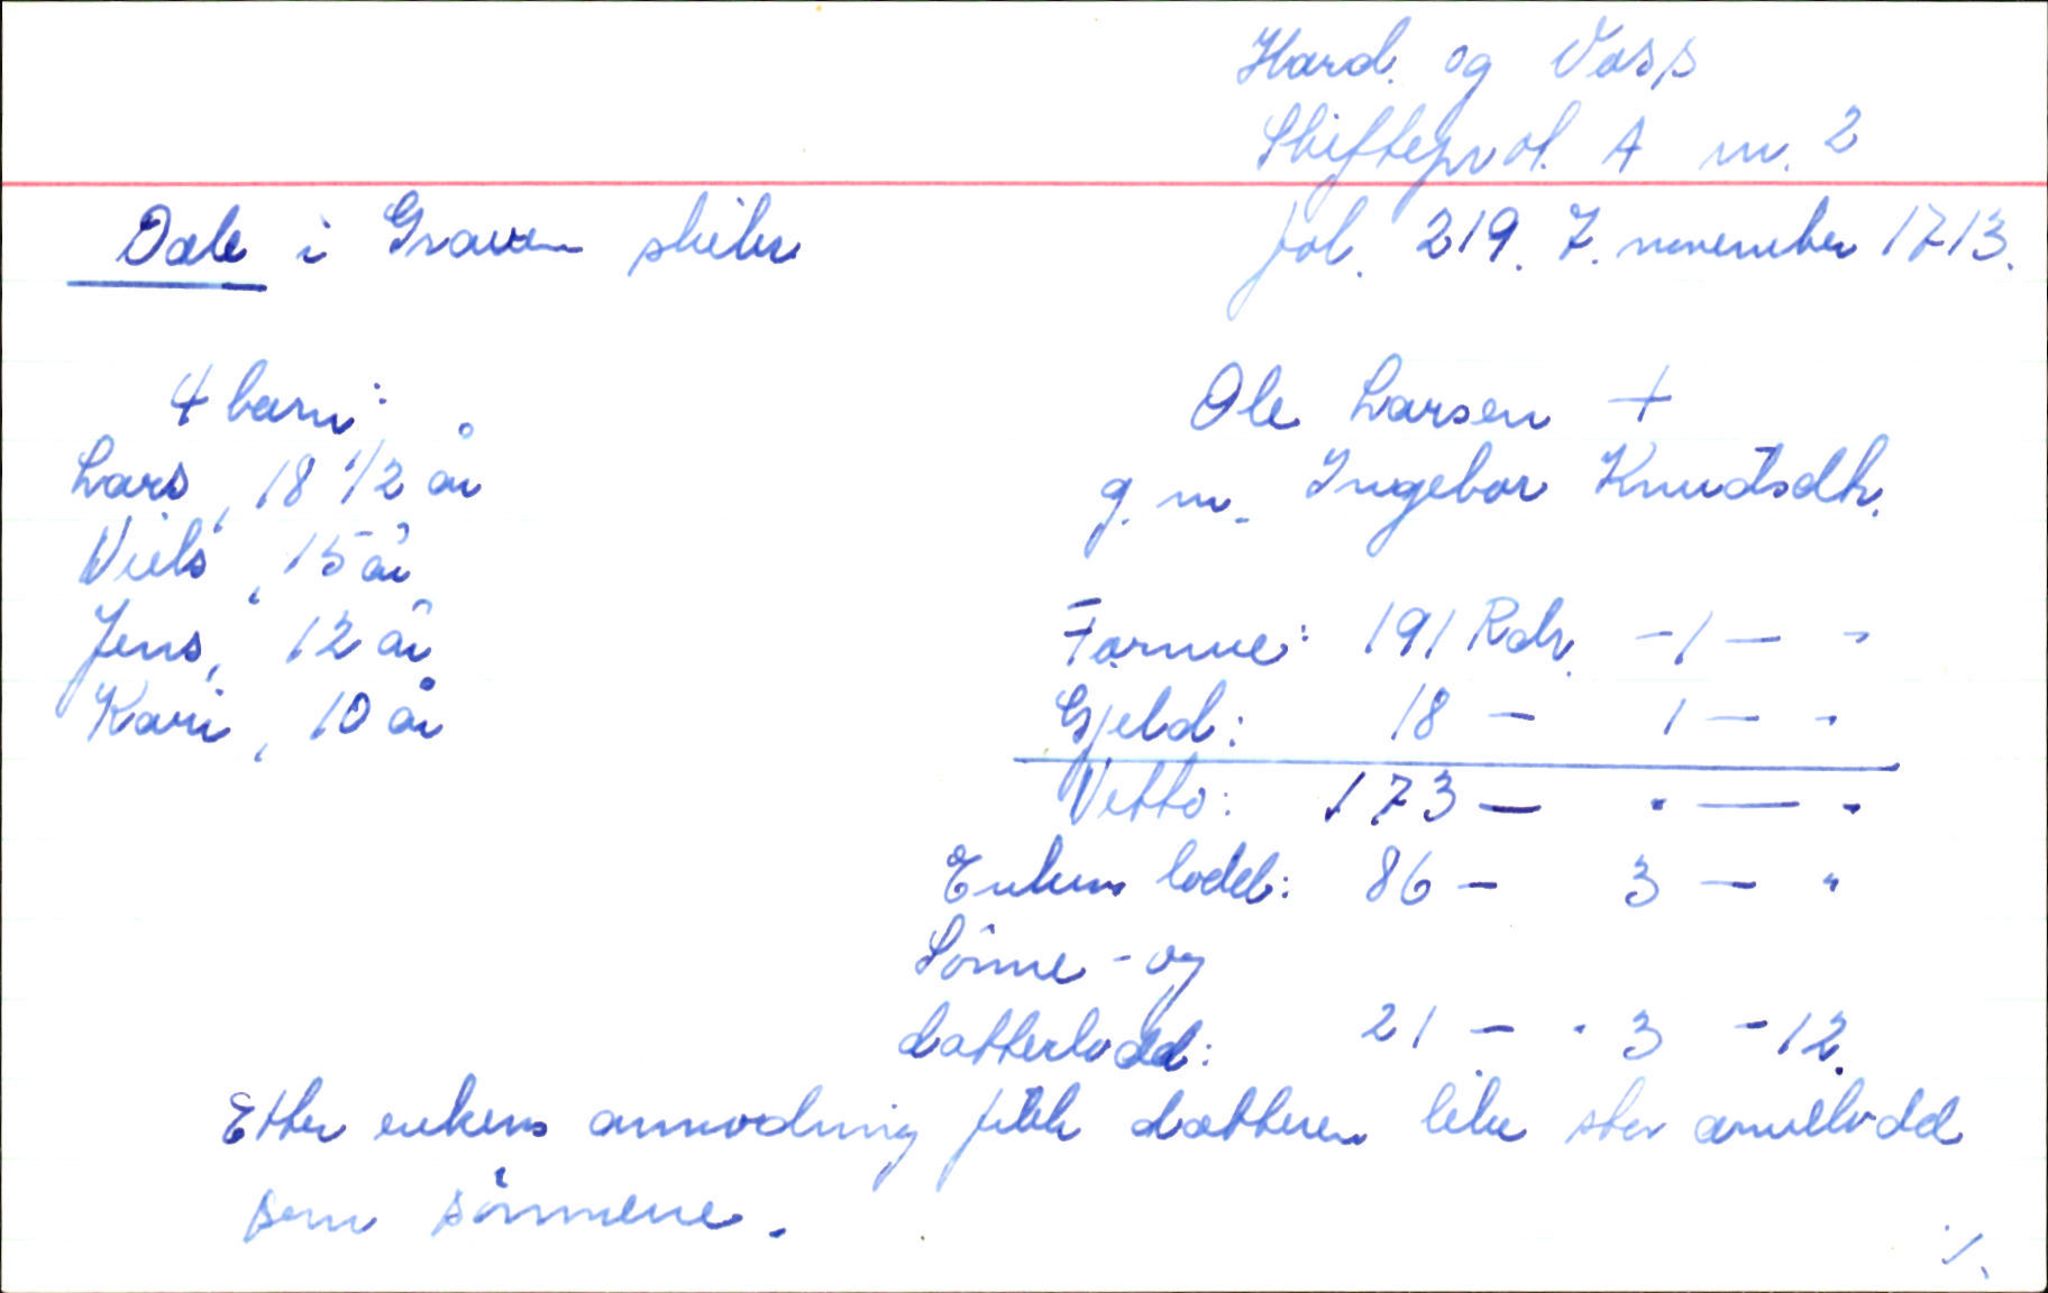 Hard. og Voss
Skifteprot. A nr. 2
Dale i Graven skibr. fol. 219. 7. november 1713.
4 barn:
Lars, 18 1/2 år
Niels, 15 år
Jens, 12 år
Kari, 10 år
Ole Larsen +
g. m. Ingebor Knudtsdtr.
Formue: 191 Rdr. - 1 - -
Gjeld: 18 - 1 - -
Netto: 173 - " - "
Enkens lodd: 86 - 3 - "
Sönne - og
datterlodd: 21 - " 3 - 12.
Etter enkens anmodning fikk datteren like stor arvelodd
som sönnene.
./.